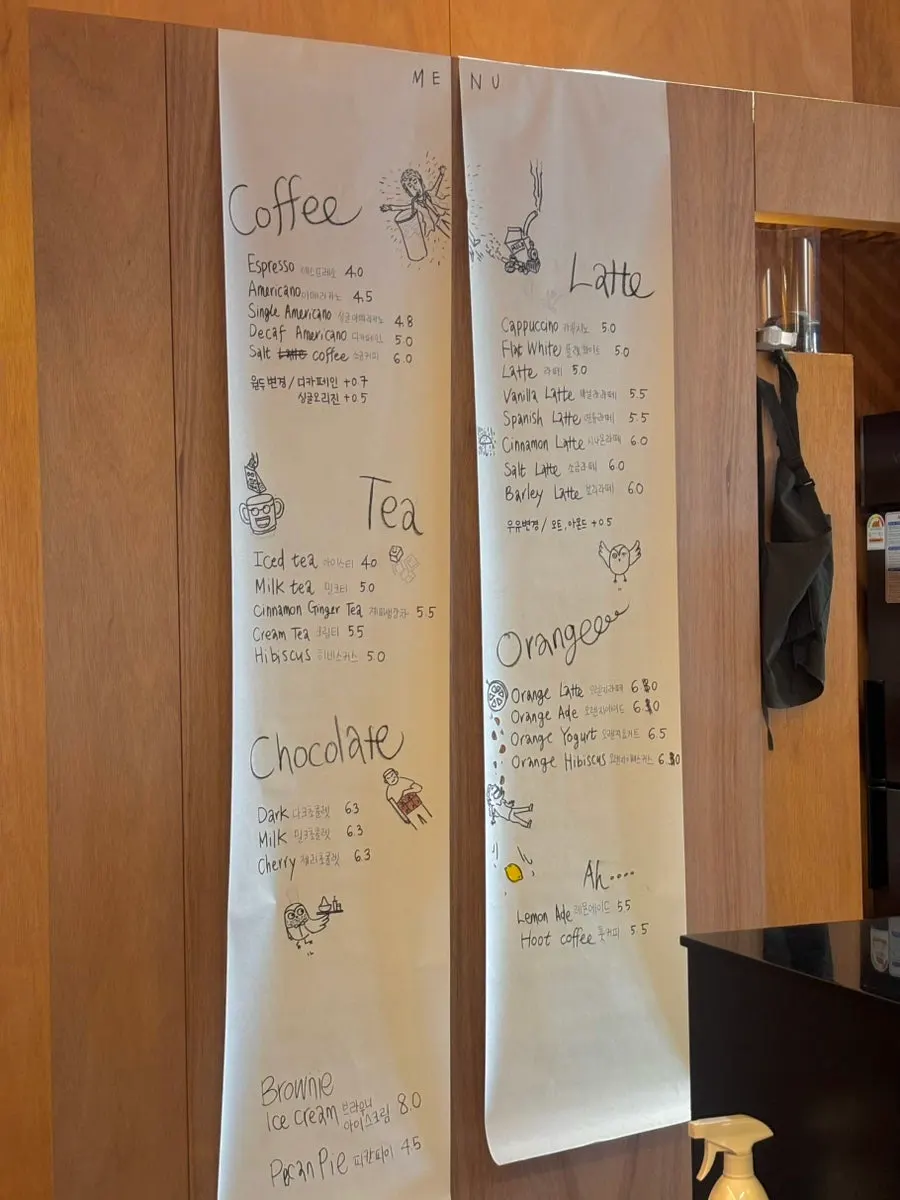 MENU
Coffee
Espresso 에스프레소 4.0
Americano 아메리카노 4.5
Single Americano 싱글아메리카노 4.8
Decaf Americano 디카페인 5.0
Salt Latte coffee 소금커피 6.0
원두변경 / 디카페인 +0.7
싱글오리진 +0.5
Tea
Iced tea 아이스티 4.0
Milk tea 밀크티 5.0
Cinnamon Ginger Tea 계피생강차 5.5
Cream Tea 크림티 5.5
Hibiscus 히비스커스 5.0
Chocolate
Dark 다크초콜렛 6.3
Milk 밀크초콜렛 6.3
Cherry 체리초콜렛 6.3
Brownie
Ice cream 브라우니 아이스크림 8.0
Pecan Pie 피칸파이 4.5
Latte
Cappuccino 카푸치노 5.0
Flat White 플랫화이트 5.0
Latte 라떼 5.0
Vanilla Latte 바닐라라떼 5.5
Spanish Latte 연유라떼 5.5
Cinnamon Latte 시나몬라떼 6.0
Salt Latte 소금라떼 6.0
Barley Latte 보리라떼 6.0
우유변경 / 오트, 아몬드 +0.5
Orangeeee
Orange Latte 오렌지라떼 6.0
Orange Ade 오렌지에이드 6.0
Orange Yogurt 오렌지요거트 6.5
Orange Hibiscus 오렌지히비스커스 6.0
Ah....
Lemon Ade 레몬에이드 5.5
Hoot coffee 훗커피 5.5